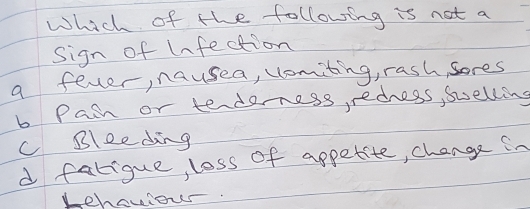 Which of the following is not a
sign of Infection
a fever, nausea, vomiting, rash, sores
b Pain or tenderness, redness, swelling
c Bleeding
d fatigue, loss of appetite, change in
behaviour.